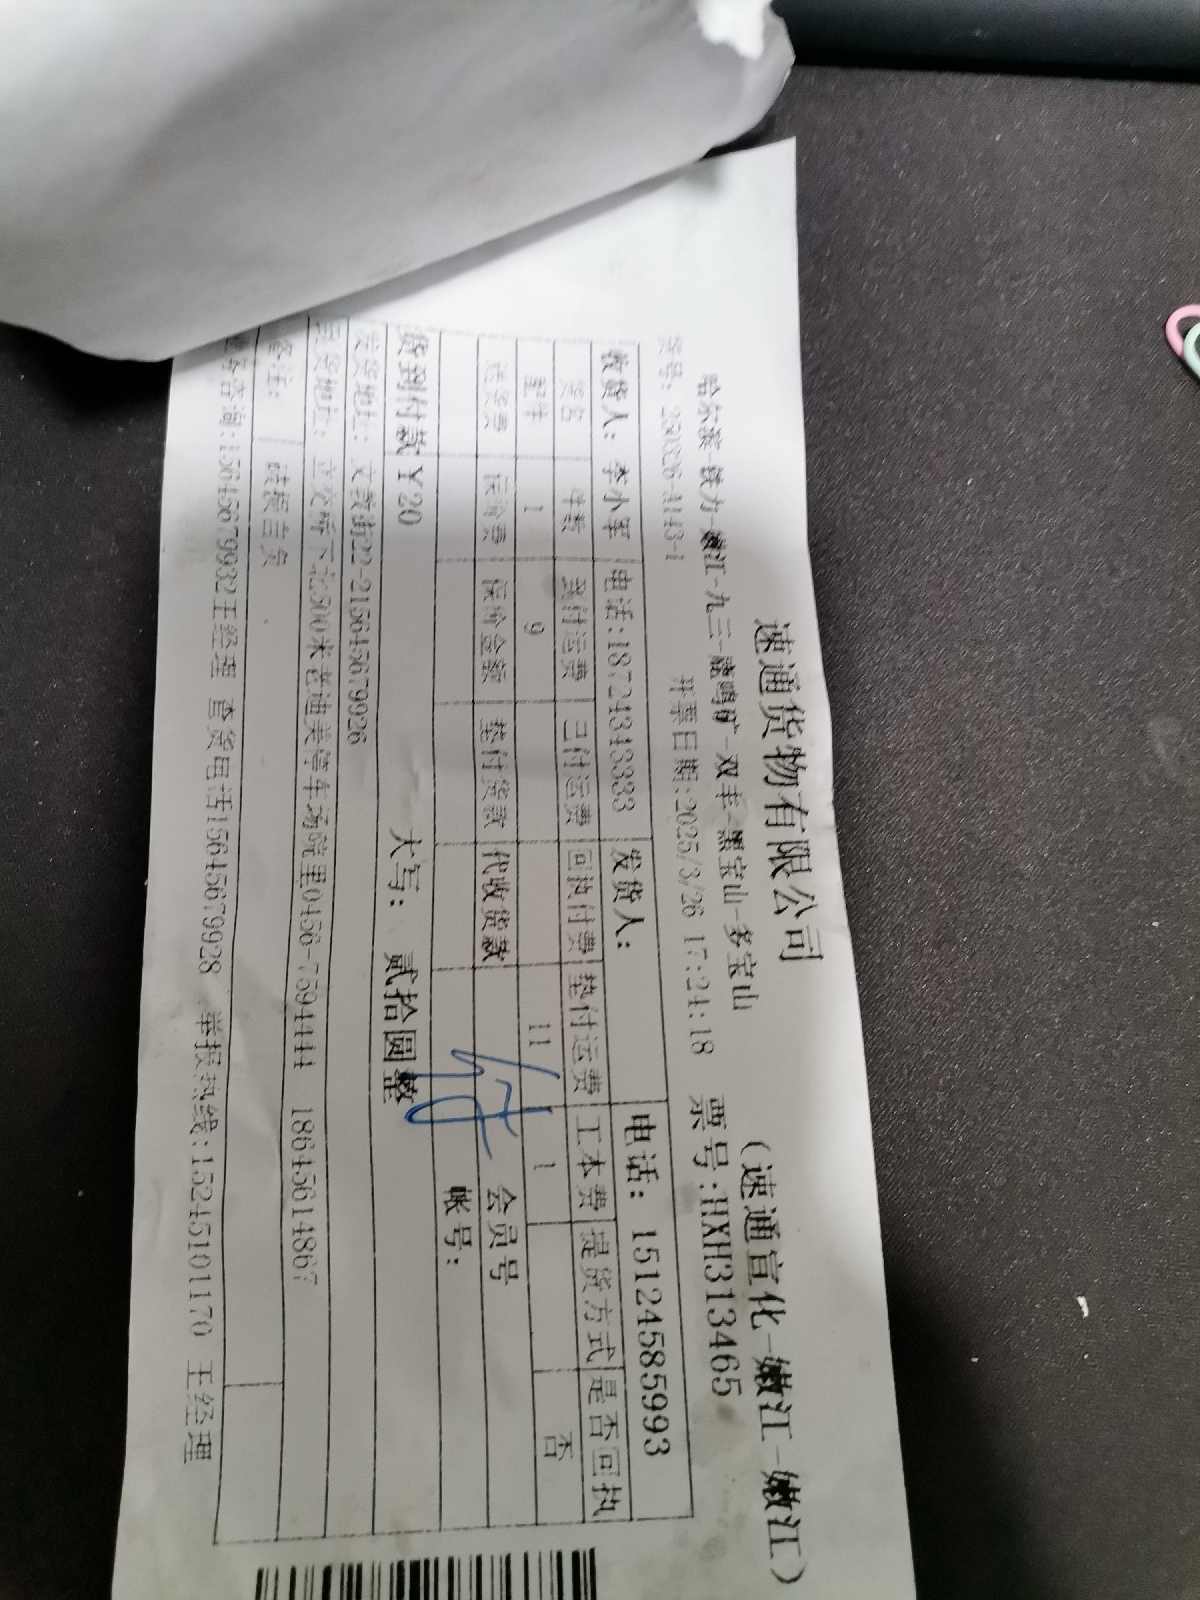 速通货物有限公司 （速通宣化-嫩江-嫩江）
哈尔滨-铁力-嫩江-九三-鹿鸣矿-双丰-黑宝山-多宝山
货号: 250326-A143-1 开票日期:2025/3/26 17:24:18 票号:HXH313465
收货人: 李小军 电话:18724343333 发货人: 电话: 15124585993
货名 件数 到付运费 已付运费 回执付费 垫付运费 工本费 提货方式 是否回执
配件 1 9 11 1 否
送货费 保价费 保价金额 垫付货款 代收货款 会员号
付 帐号:
货到付款 ¥20 大写: 贰拾圆整
发货地址: 文教街22-2 15645679926
提货地址: 立交桥下北300米老迪美停车场院里0456-7594444 18645614867
备注: 破损自负
业务咨询:15645679932王经理 查货电话15645679928 举报热线:15245101170 王经理